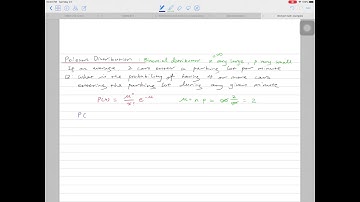 Poisson Distribution Binomial distribution n any large, p any small
If on average 2 cars enter a parking lot per minute
Q What is the probability of having 4 or more cars
entering the parking lot during any given minute
P(r) = μ^r/r! e^-μ μ = n p = ∞ 2/∞ = 2
P(